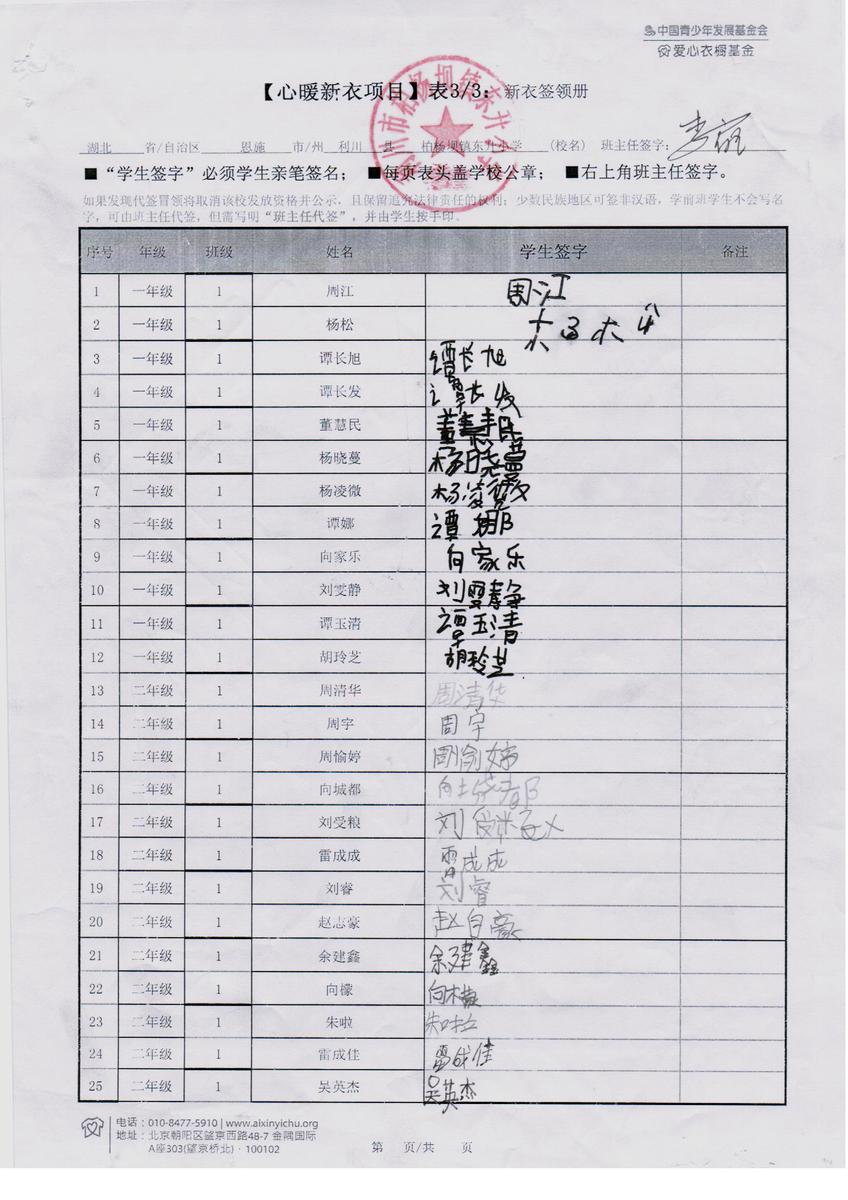 中国青少年发展基金会
爱心衣橱基金
【心暖新衣项目】表3/3：新衣签领册
湖北 省/自治区 恩施 市/州 利川 县 柏杨坝镇东升小学 (校名) 班主任签字：
■“学生签字”必须学生亲笔签名； ■每页表头盖学校公章； ■右上角班主任签字。
如果发现代签冒领将取消该校发放资格并公示，且保留追究法律责任的权利；少数民族地区可签非汉语，学前班学生不会写名
字，可由班主任代签，但需写明“班主任代签”，并由学生按手印。
序号 年级 班级 姓名 学生签字 备注
1 一年级 1 周江 周江
2 一年级 1 杨松
3 一年级 1 谭长旭 谭长旭
4 一年级 1 谭长发 谭长发
5 一年级 1 董慧民 董慧民
6 一年级 1 杨晓蔓 杨晓蔓
7 一年级 1 杨凌微 杨凌微
8 一年级 1 谭娜 谭娜
9 一年级 1 向家乐 向家乐
10 一年级 1 刘雯静 刘雯静
11 一年级 1 谭玉清 谭玉清
12 一年级 1 胡玲芝 胡玲芝
13 二年级 1 周清华 周清华
14 二年级 1 周宇 周宇
15 二年级 1 周愉婷 周愉婷
16 二年级 1 向城都
17 二年级 1 刘受粮 刘受粮
18 二年级 1 雷成成 雷成成
19 二年级 1 刘睿 刘睿
20 二年级 1 赵志豪
21 二年级 1 余建鑫 余建鑫
22 二年级 1 向檬 向檬
23 二年级 1 朱啦 朱啦
24 二年级 1 雷成佳 雷成佳
25 二年级 1 吴英杰 吴英杰
电话：010-8477-5910 | www.aixinyichu.org
地址：北京朝阳区望京西路48-7 金隅国际
A座303(望京桥北) · 100102
第 页/共 页